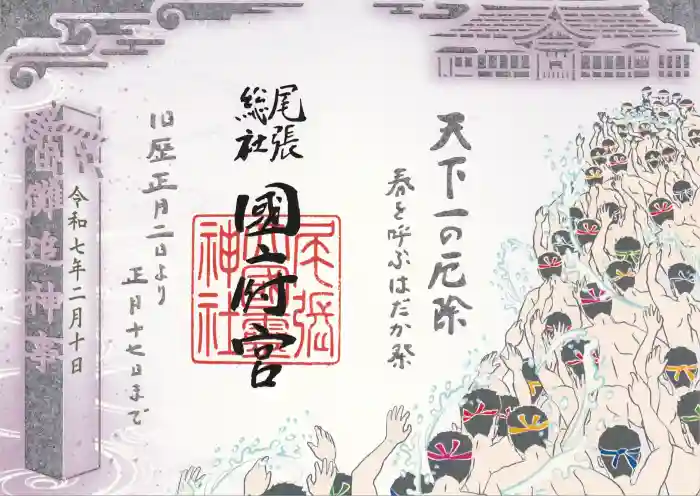 天下一の厄除
春を呼ぶはだか祭
尾張
総社
國府宮
尾張
國霊
神社
旧歴正月二日より
正月十七日まで
令和七年二月十日
儺追神事